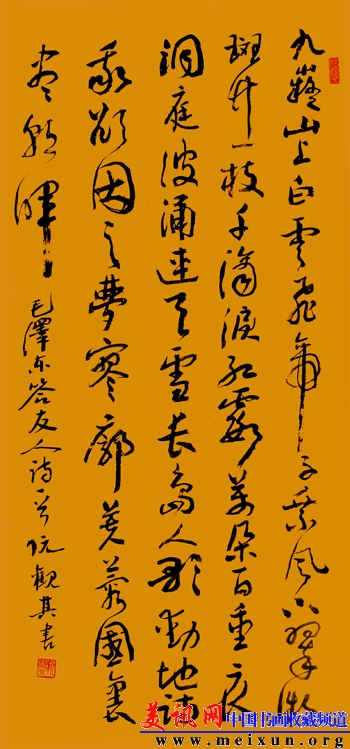 九嶷山上白云飞帝子乘风下翠微
斑竹一枝千滴泪红霞万朵百重衣
洞庭波涌连天雪长岛人歌动地诗
我欲因之梦寥廓芙蓉国里
尽朝晖
毛泽东答友人诗一首 阮观其书
美讯网
中国书画收藏频道
www.meixun.org